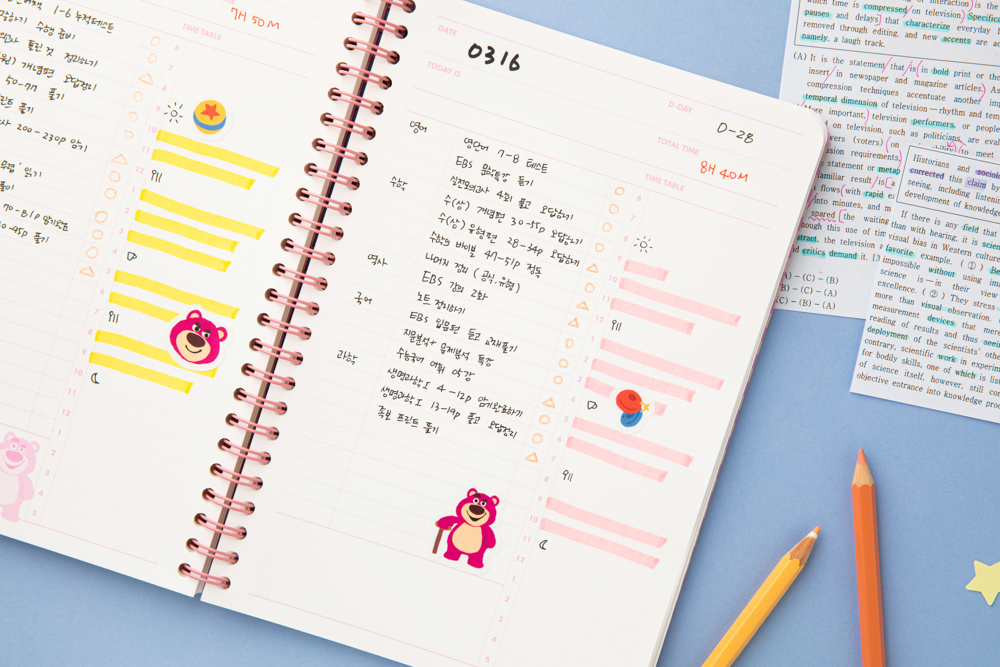 1-6 누적테스트
수행 준비
풀린 것 정리하기
개념편 오답정리
50-77 풀기
프린트 풀기
200-230p 암기
읽기
70-81p 암기완료
풀기
7H 50M
TIME TABLE
6
7
8
9
10
밥
밥
10
11
12
1
2
3
4
5
DATE
0316
TODAY IS
D-DAY
D-28
TOTAL TIME
8H 40M
TIME TABLE
영어
영단어 7-8 테스트
EBS 듣기
실전모의고사 4회 풀고 오답하기
수학
수(상) 개념편 30-55p 오답하기
수(상) 유형편 28-34p 오답하기
수학의 바이블 47-51p 정독
나머지 정리 (공식, 유형)
역사
EBS 강의 2강
노트 정리하기
국어
EBS 입문편 듣고 교재풀기
지문분석 + 문제분석 특강
수능국어 어휘 05강
과학
생명과학 I 4-12p 암기완료하기
생명과학 I 13-19p 풀고 오답정리
족보 프린트 풀기
6
7
8
9
10
11
12
밥
1
2
3
4
5
6
7
밥
8
9
10
11
12
1
2
3
4
5
which time is compressed on television. Specifical
pauses and delays] that characterize everyday l
removed through editing, and new accents are ad
namely, a laugh track.
(A) It is the statement that is in bold print or the
insert in newspaper and magazine articles. As
compression techniques accentuate another im
temporal dimension of television—rhythm and tem
More important, television performers, or people
on television, such as politicians, are evalu
viewers (voters) on
to meet
requirements,
statement or metap
familiar result is [a
flows with rapid e
into minutes, and m
spared [the waiting
though this use of tim
the television
and critics demand it. [3
(A) - (C) - (B)
(B) - (C) - (A)
(C) - (B) - (A)
Historians and sociolo
corrected this claim by
seeing, including listening
development of knowled
If there is any field that
than with hearing, it is scien
visual bias in Western culture
favorite example. ( ① ) Be
impossible without using im
science is — in their view
excellence. ( ② ) They stress
more than visual observation.
measurement devices that mere
reading of results and thus seein
deployment of the scientists' other
contrary, scientific work in experime
for bodily skills, one of which is liste
of science itself, however, still cor
objective entrance into knowledge proc